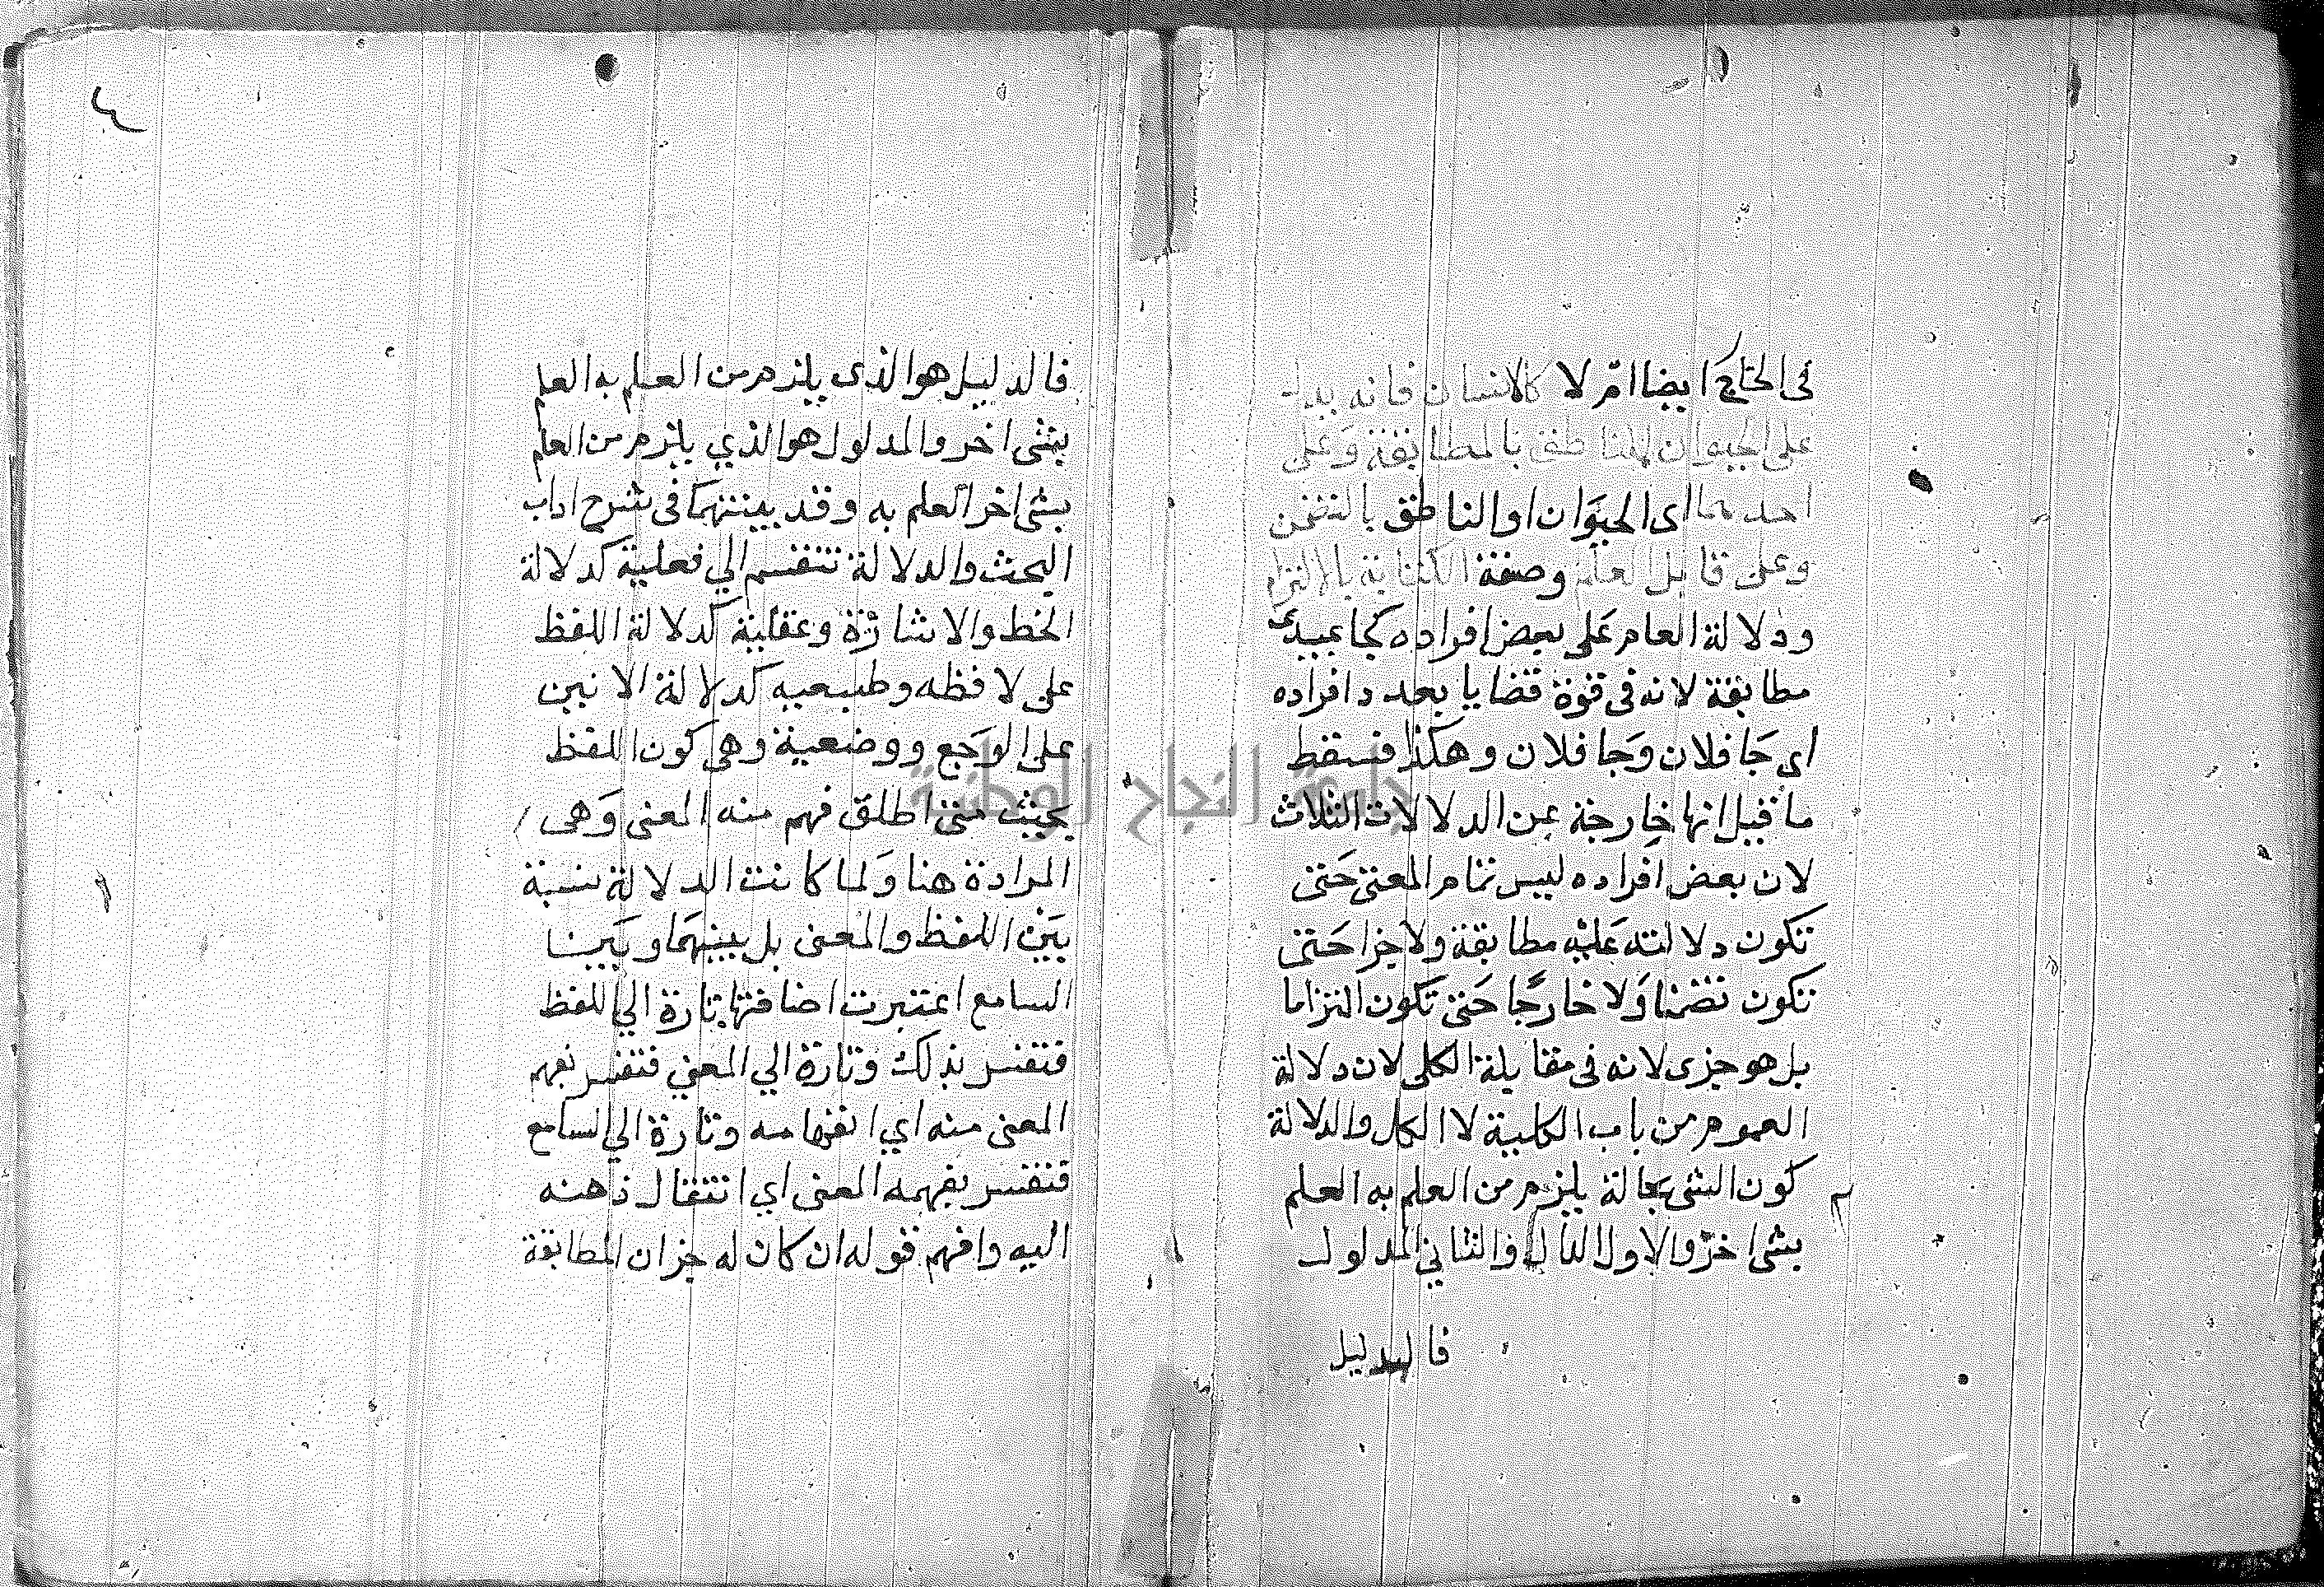 فى الخارج ايضا ام لا كالانسان فانه يدل
على الحيوان الناطق بالمطابقة وعلى
احدهما اى الحيوان او الناطق بالتضمن
وعلى قابل العلم وصفة الكتابة بالالتزام
ودلالة العام على بعض افراده كجا عبيدى
مطابقة لانه فى قوة قضايا بعدد افراده
اي جا فلان وجا فلان وهكذا فسقط
ما قيل انها خارجة عن الدلالات الثلاث
لان بعض افراده ليس تمام المعنى حتى
تكون دلالته عليه مطابقة ولا جزا حتى
تكون تضمنا ولا خارجا حتى تكون التزاما
بل هو جزى لانه فى مقابلة الكلى لان دلالة
العموم من باب الكلية لا الكل والدلالة
كون الشى بحالة يلزم من العلم به العلم
بشى اخر والاول الدال والثاني المدلول
فالدليل
٤
فالدليل هو الذى يلزم من العلم به العلم
بشى اخر والمدلول هو الذي يلزم من العلم
بشى اخر العلم به وقد بينتهما فى شرح اداب
البحث والدلالة تنقسم الي فعلية كدلالة
الخط والاشارة وعقلية كدلالة اللفظ
على لافظه وطبيعيه كدلالة الانين
على الوجع ووضعية وهى كون اللفظ
بحيث متى اطلق فهم منه المعنى وهى
المرادة هنا ولما كانت الدلالة نسبة
بين اللفظ والمعنى بل بينهما وبين
السامع اعتبرت اضافتها تارة الي اللفظ
فتفسر بذلك وتارة الي المعني فتفسر بفهم
المعنى منه اي انفهامه وتارة الي السامع
فتفسر بفهمه المعنى اي انتقال ذهنه
اليه وافهم قوله ان كان له جزان المطابقة
جامعة النجاح الوطنية